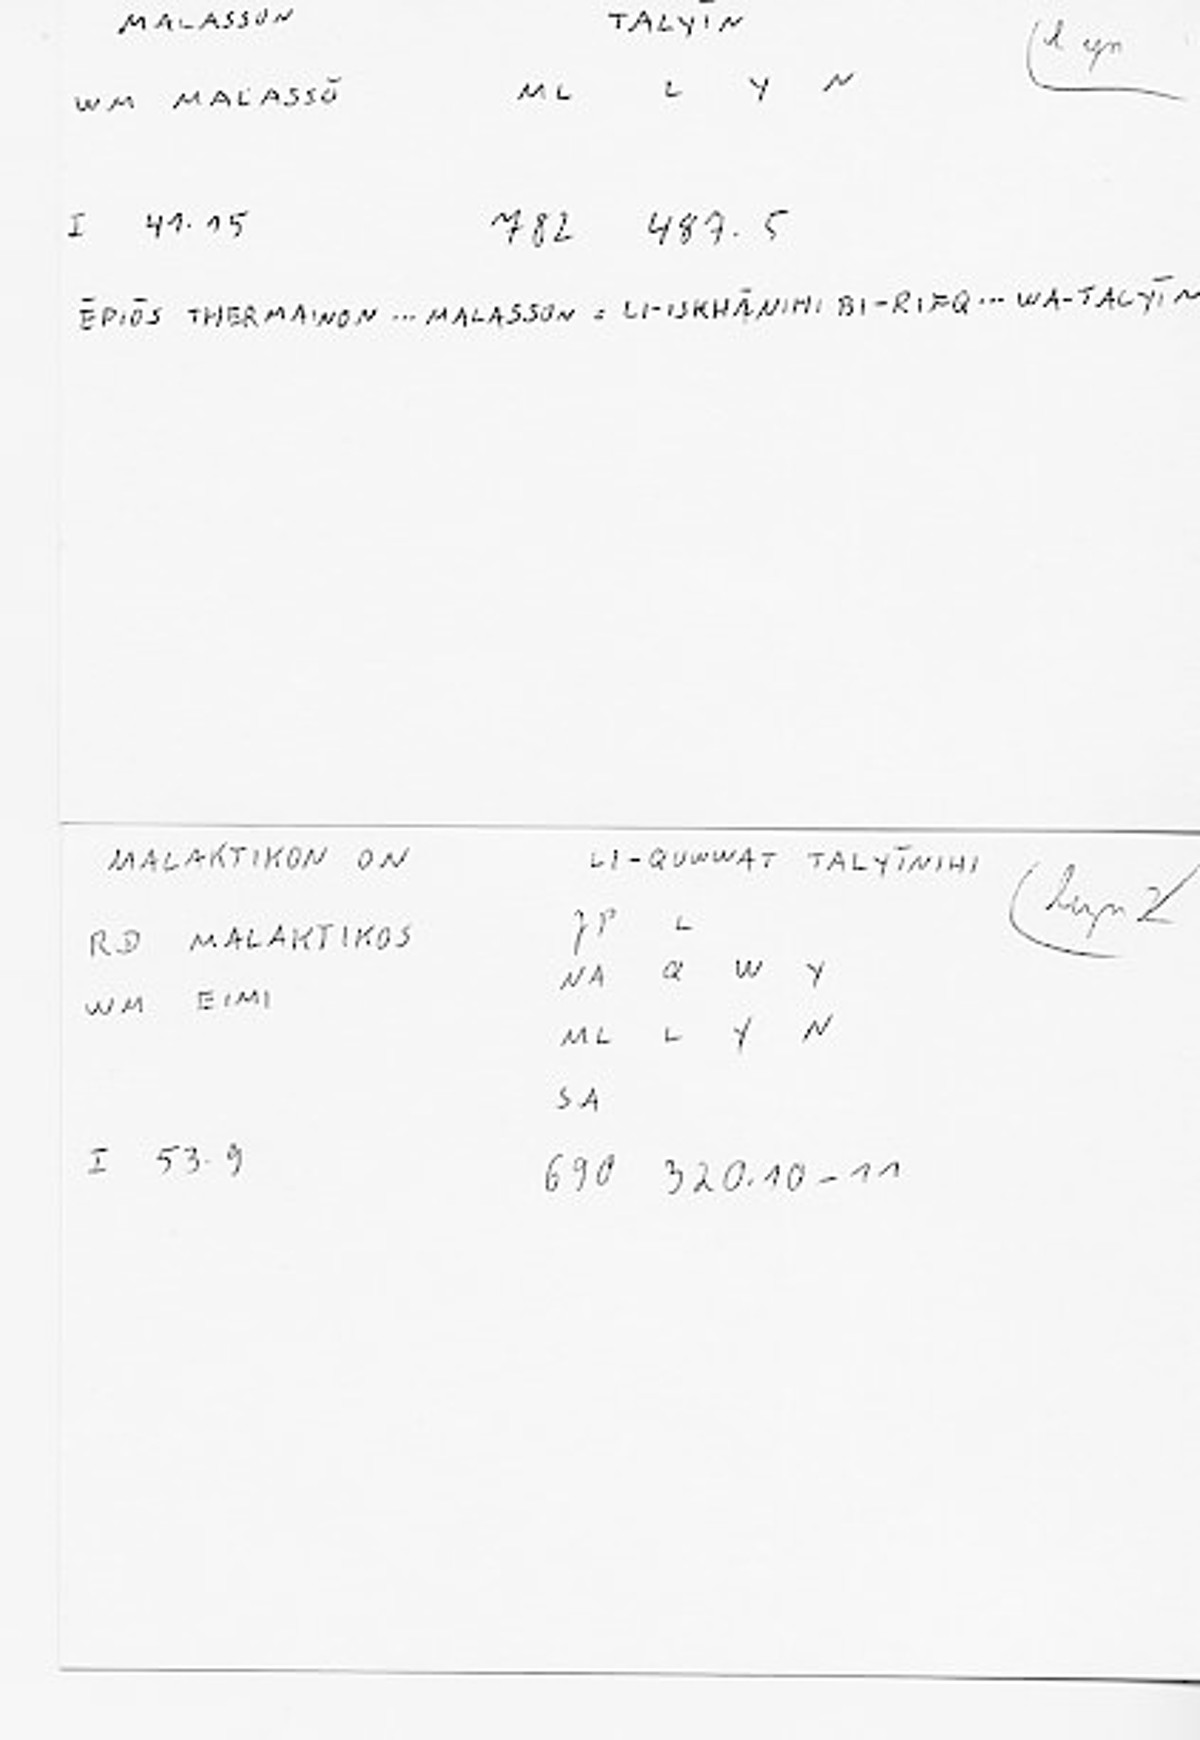 MALASSON TALYĪN
WM MALASSŌ ML L Y N
I 41.15 782 487.5
ĒPIŌS THERMAINON ... MALASSON = LI-ISKHĀNIHI BI-RIFQ ... WA-TALYĪN
MALAKTIKON ON LI-QUWWAT TALYĪNIHI
RD MALAKTIKOS JP L
NA Q W Y
WM EIMI
ML L Y N
SA
I 53.9 690 320.10-11